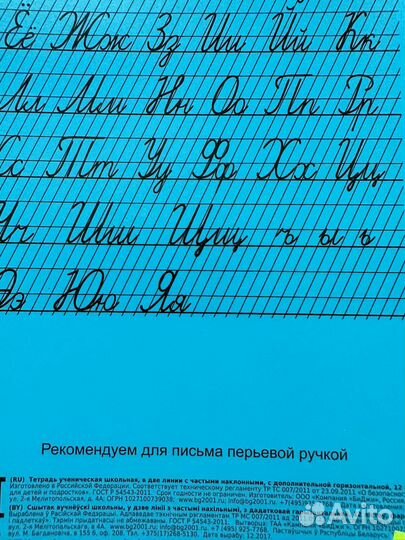 Ёё Жж Зз Ии Йй Кк
Лл Мм Нн Оо Пп Рр
Сс Тт Уу Фф Хх Цц
Чч Шш Щщ ъ ы ь
Ээ Юю Яя
Рекомендуем для письма перьевой ручкой
(RU) Тетрадь ученическая школьная, в две линии с частыми наклонными, с дополнительной горизонтальной, 12
Изготовлено в Российской Федерации. Соответствует техническому регламенту ТР ТС 007/2011 от 23.09.2011 «О безопаснос
для детей и подростков». ГОСТ Р 54543-2011. Срок годности не ограничен. Изготовитель: ООО «Компания «БиДжи», Росси
ул. 2-я Мелитопольская, д. 4А; ОГРН 1027100739038; www.bg2001.ru; info@bg2001.ru, +7(495)
(BY) Сшытак вучнёўскі школьны, у дзве лініі з частымі нахільнымі, з дадатковай
Выраблена ў Расійскай Федэрацыі. Адпаведае тэхнічным рэгламентам ТР МС 007/2011
і падлеткаў». Тэрмін прыдатнасці не абмежаваны. ГОСТ Р 54543-2011. Вытворца: ТАА
2-я Мелітопальская, д. 4А, www.bg2001.ru, +7 (495) 925-7768. Пастаўшчык ў Рэспубліку Беларусь:
вул. М. Багдановіча, в 155 б, оф. 208. Тэл. +375(17)268-5130. Дата вырабу: 12.2017
Avito